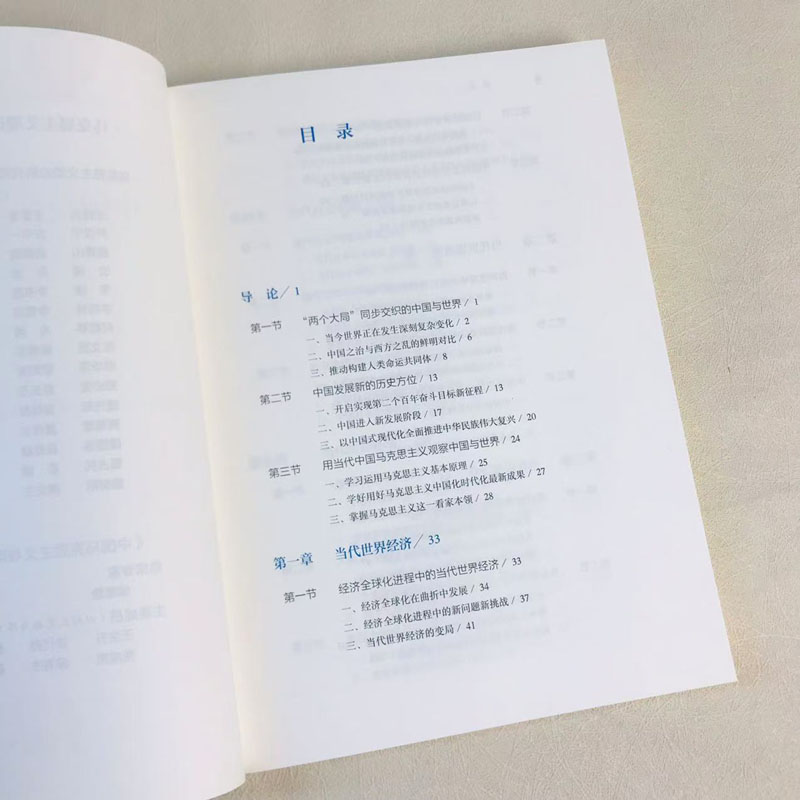 目 录
导 论 / 1
第一节 “两个大局”同步交织的中国与世界 / 1
一、当今世界正在发生深刻复杂变化 / 2
二、中国之治与西方之乱的鲜明对比 / 6
三、推动构建人类命运共同体 / 8
第二节 中国发展新的历史方位 / 13
一、开启实现第二个百年奋斗目标新征程 / 13
二、中国进入新发展阶段 / 17
三、以中国式现代化全面推进中华民族伟大复兴 / 20
第三节 用当代中国马克思主义观察中国与世界 / 24
一、学习运用马克思主义基本原理 / 25
二、学好用好马克思主义中国化时代化最新成果 / 27
三、掌握马克思主义这一看家本领 / 28
第一章 当代世界经济 / 33
第一节 经济全球化进程中的当代世界经济 / 33
一、经济全球化在曲折中发展 / 34
二、经济全球化进程中的新问题新挑战 / 37
三、当代世界经济的变局 / 41